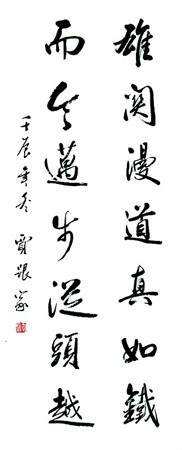 雄關漫道真如鐵
而今邁步從頭越
壬辰年冬